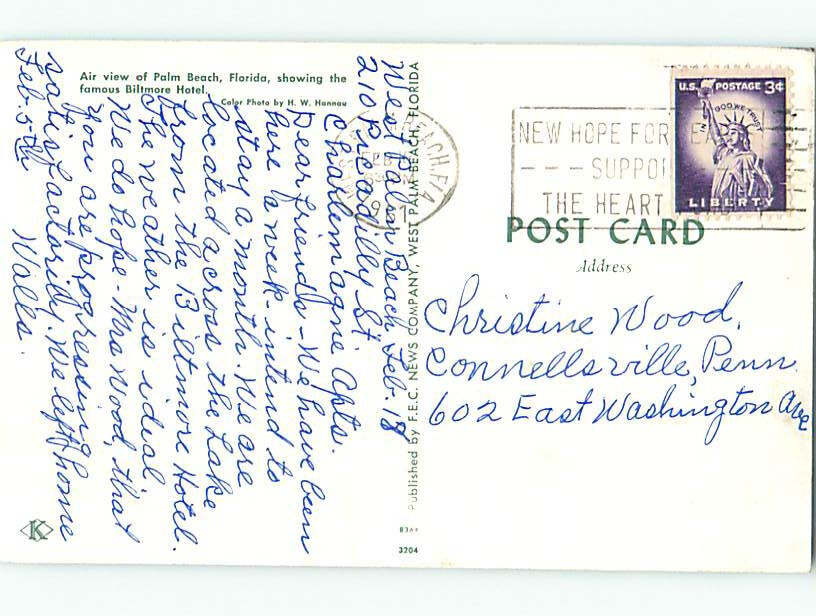 Air view of Palm Beach, Florida, showing the
famous Biltmore Hotel.
Color Photo by H. W. Hannau
West Palm Beach, Feb. 18
210 Preadilly St
Charlemagne Apts.
Dear friends - We have been
here a week intend to
stay a month. We are
located across the Lake
from the Biltmore Hotel.
The weather is idual
We do hope - Mrs Wood, that
you are progressing
satisfactorily. We left home
Feb-5th Walls.
Published by F.E.C. NEWS COMPANY, WEST PALM BEACH, FLORIDA
K
3204
BEACH, FLA
FEB
PM
1961
NEW HOPE FOR HEAR
--- SUPPO
THE HEART
U.S. POSTAGE 3¢
IN GOD WE TRUST
LIBERTY
POST CARD
Address
Christine Wood,
Connellsville, Penn.
602 East Washington Ave